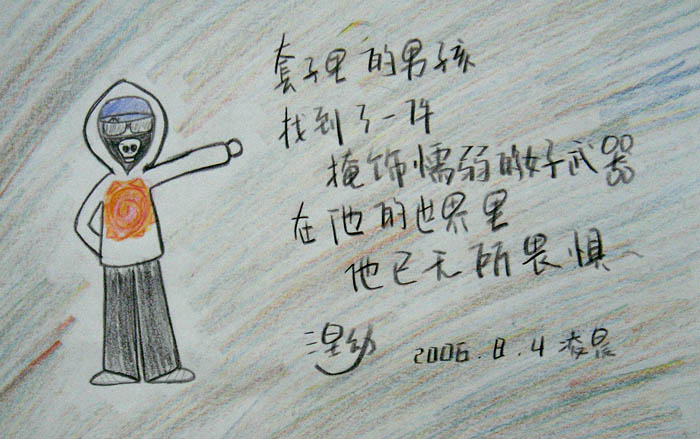 套子里的男孩
找到了一件
掩饰懦弱的好武器
在他的世界里
他已无所畏惧~
2006.8.4 凌晨